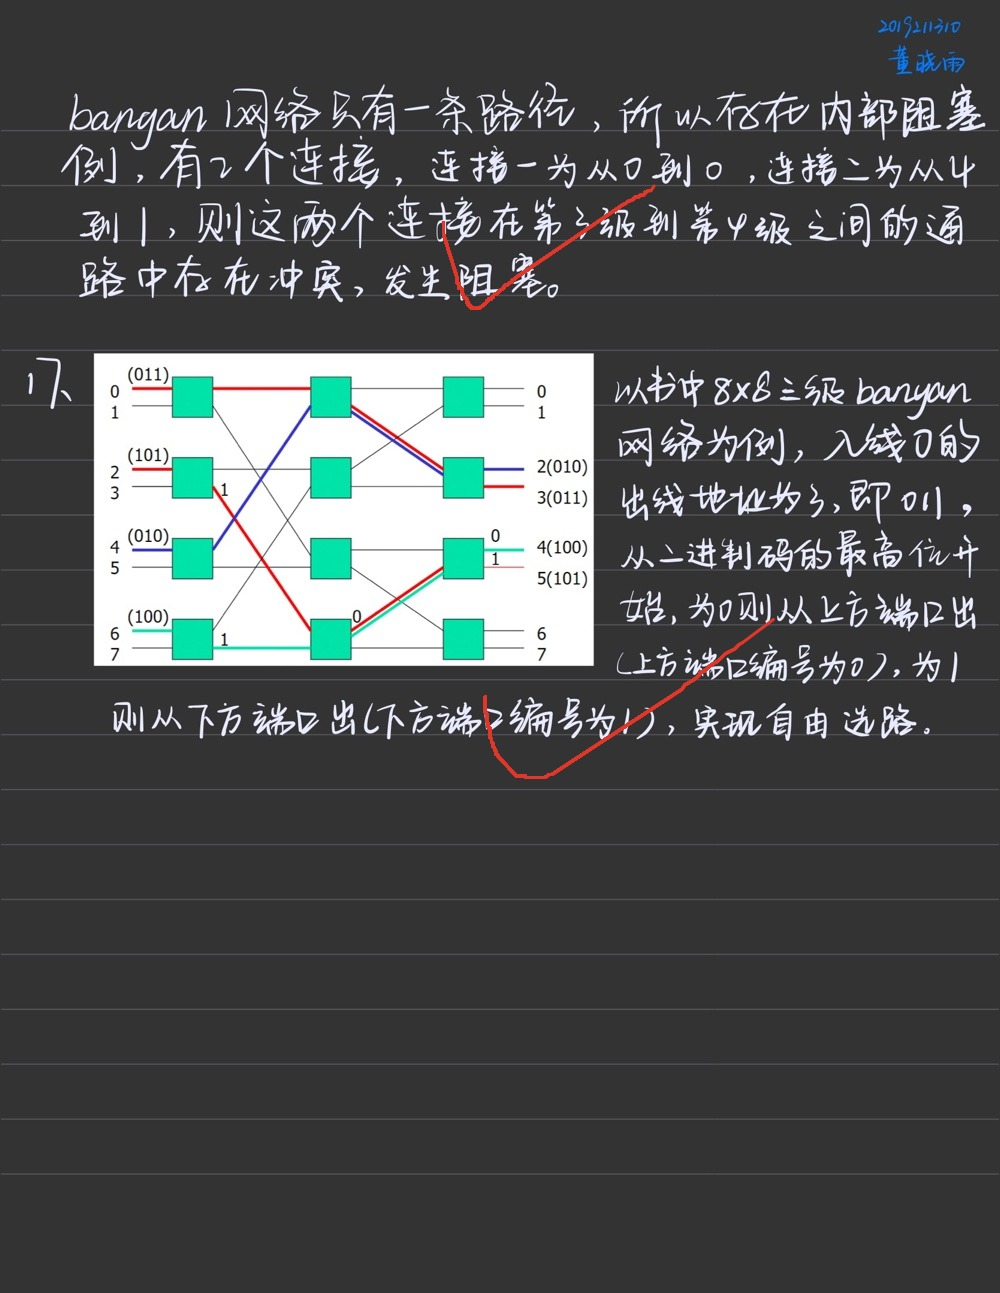 2019211310
董晓雨
banyan网络只有一条路径，所以存在内部阻塞
例，有2个连接，连接一为从0到0，连接二为从4
到1，则这两个连接在第3级到第4级之间的通
路中存在冲突，发生阻塞。
17、
0 (011)
1
2 (101)
3
4 (010)
5
6 (100)
7
1
1
0
0
1
0
1
2(010)
3(011)
4(100)
5(101)
6
7
以书中8x8三级banyan
网络为例，入线0的
出线地址为3，即011，
从二进制码的最高位开
始，为0则从上方端口出
(上方端口编号为0)，为1
则从下方端口出(下方端口编号为1)，实现自由选路.